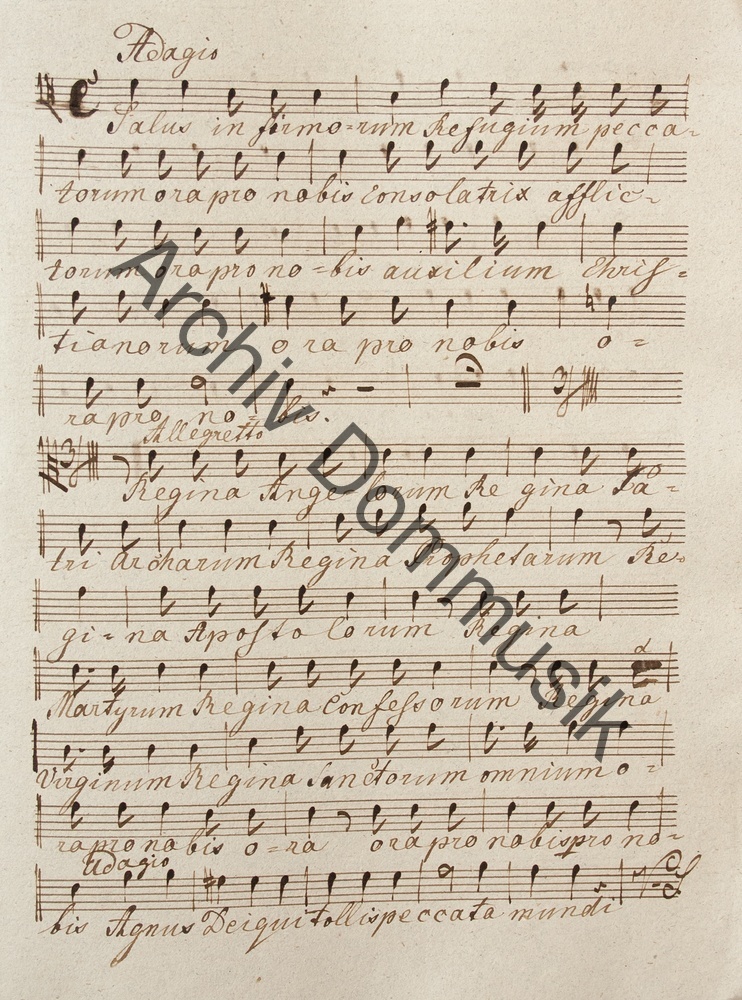 Adagio
Salus in firmo=rum Refugium pecca=
torum ora pro nobis Consolatrix afflic=
torum ora pro no=bis auxilium Chris=
tianorum ora pro nobis o=
ra pro no=bis.
Allegretto
Regina Angelorum Regina Pa=
tri archarum Regina Prophetarum Re=
gi=na Aposto lorum Regina
Martyrum Regina Confessorum Regina
Virginum Regina Sanctorum omnium o=
ra pro nobis o=ra ora pro nobis pro no=
Adagio
bis Agnus Dei qui tollis peccata mundi
Archiv Dommusik